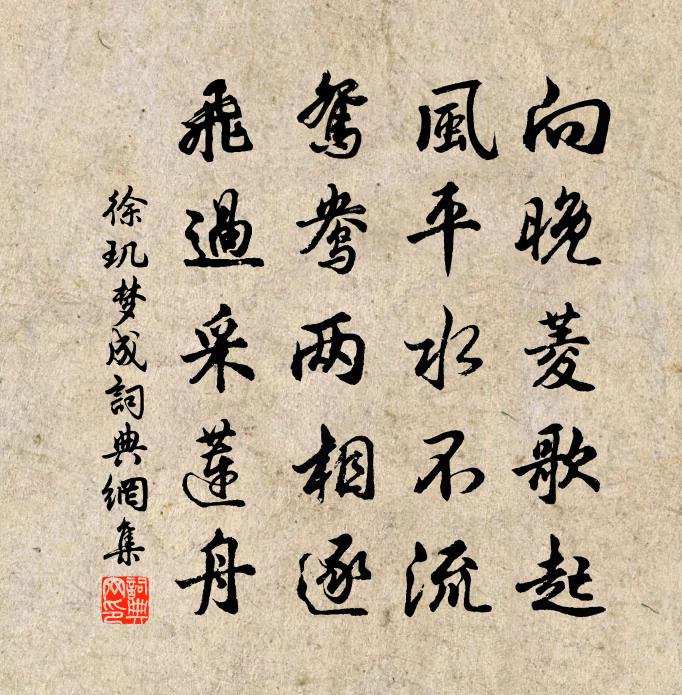 向晚菱歌起
風平水不流
鴛鴦两相逐
飛過采蓮舟
徐玑梦成詞典網集
詞典网印